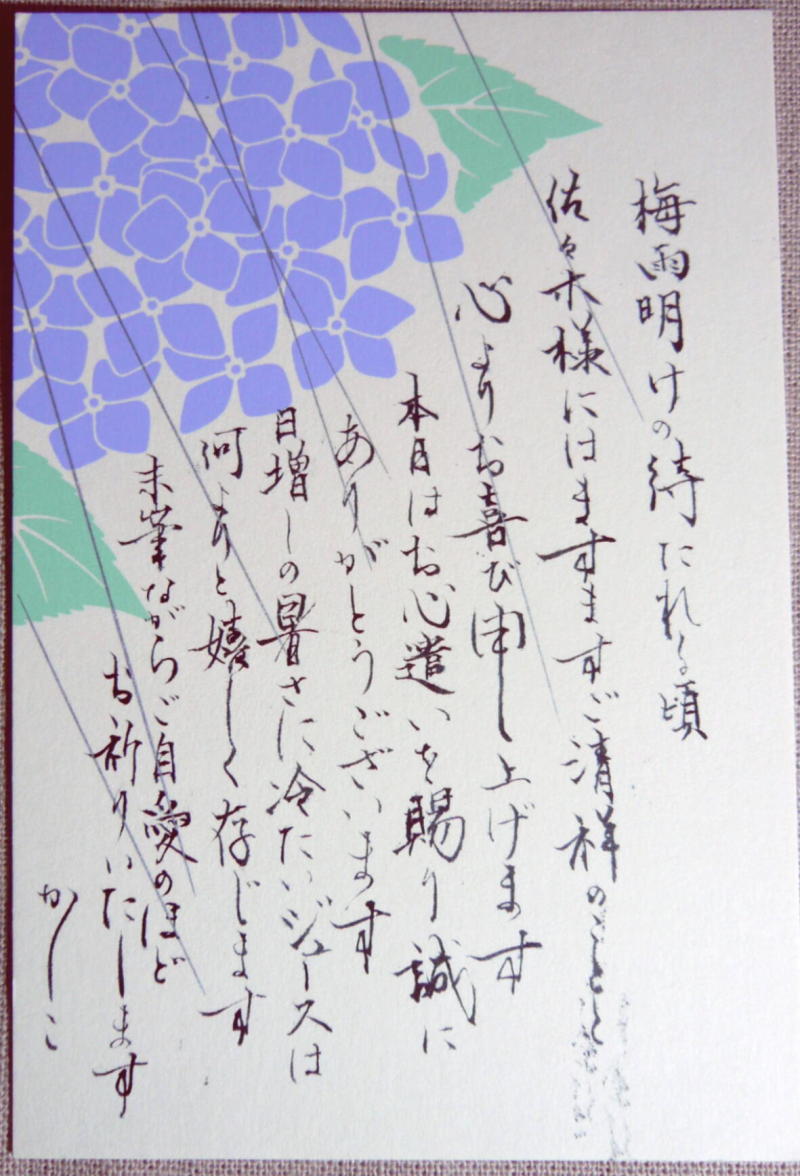 梅雨明けの待たれる頃
佐々木様にはますますご清祥のことと
心よりお喜び申し上げます
本日はお心遣いを賜り誠に
ありがとうございます
日増しの暑さに冷たいジュースは
何よりと嬉しく存じます
末筆ながらご自愛のほど
お祈りいたします
かしこ